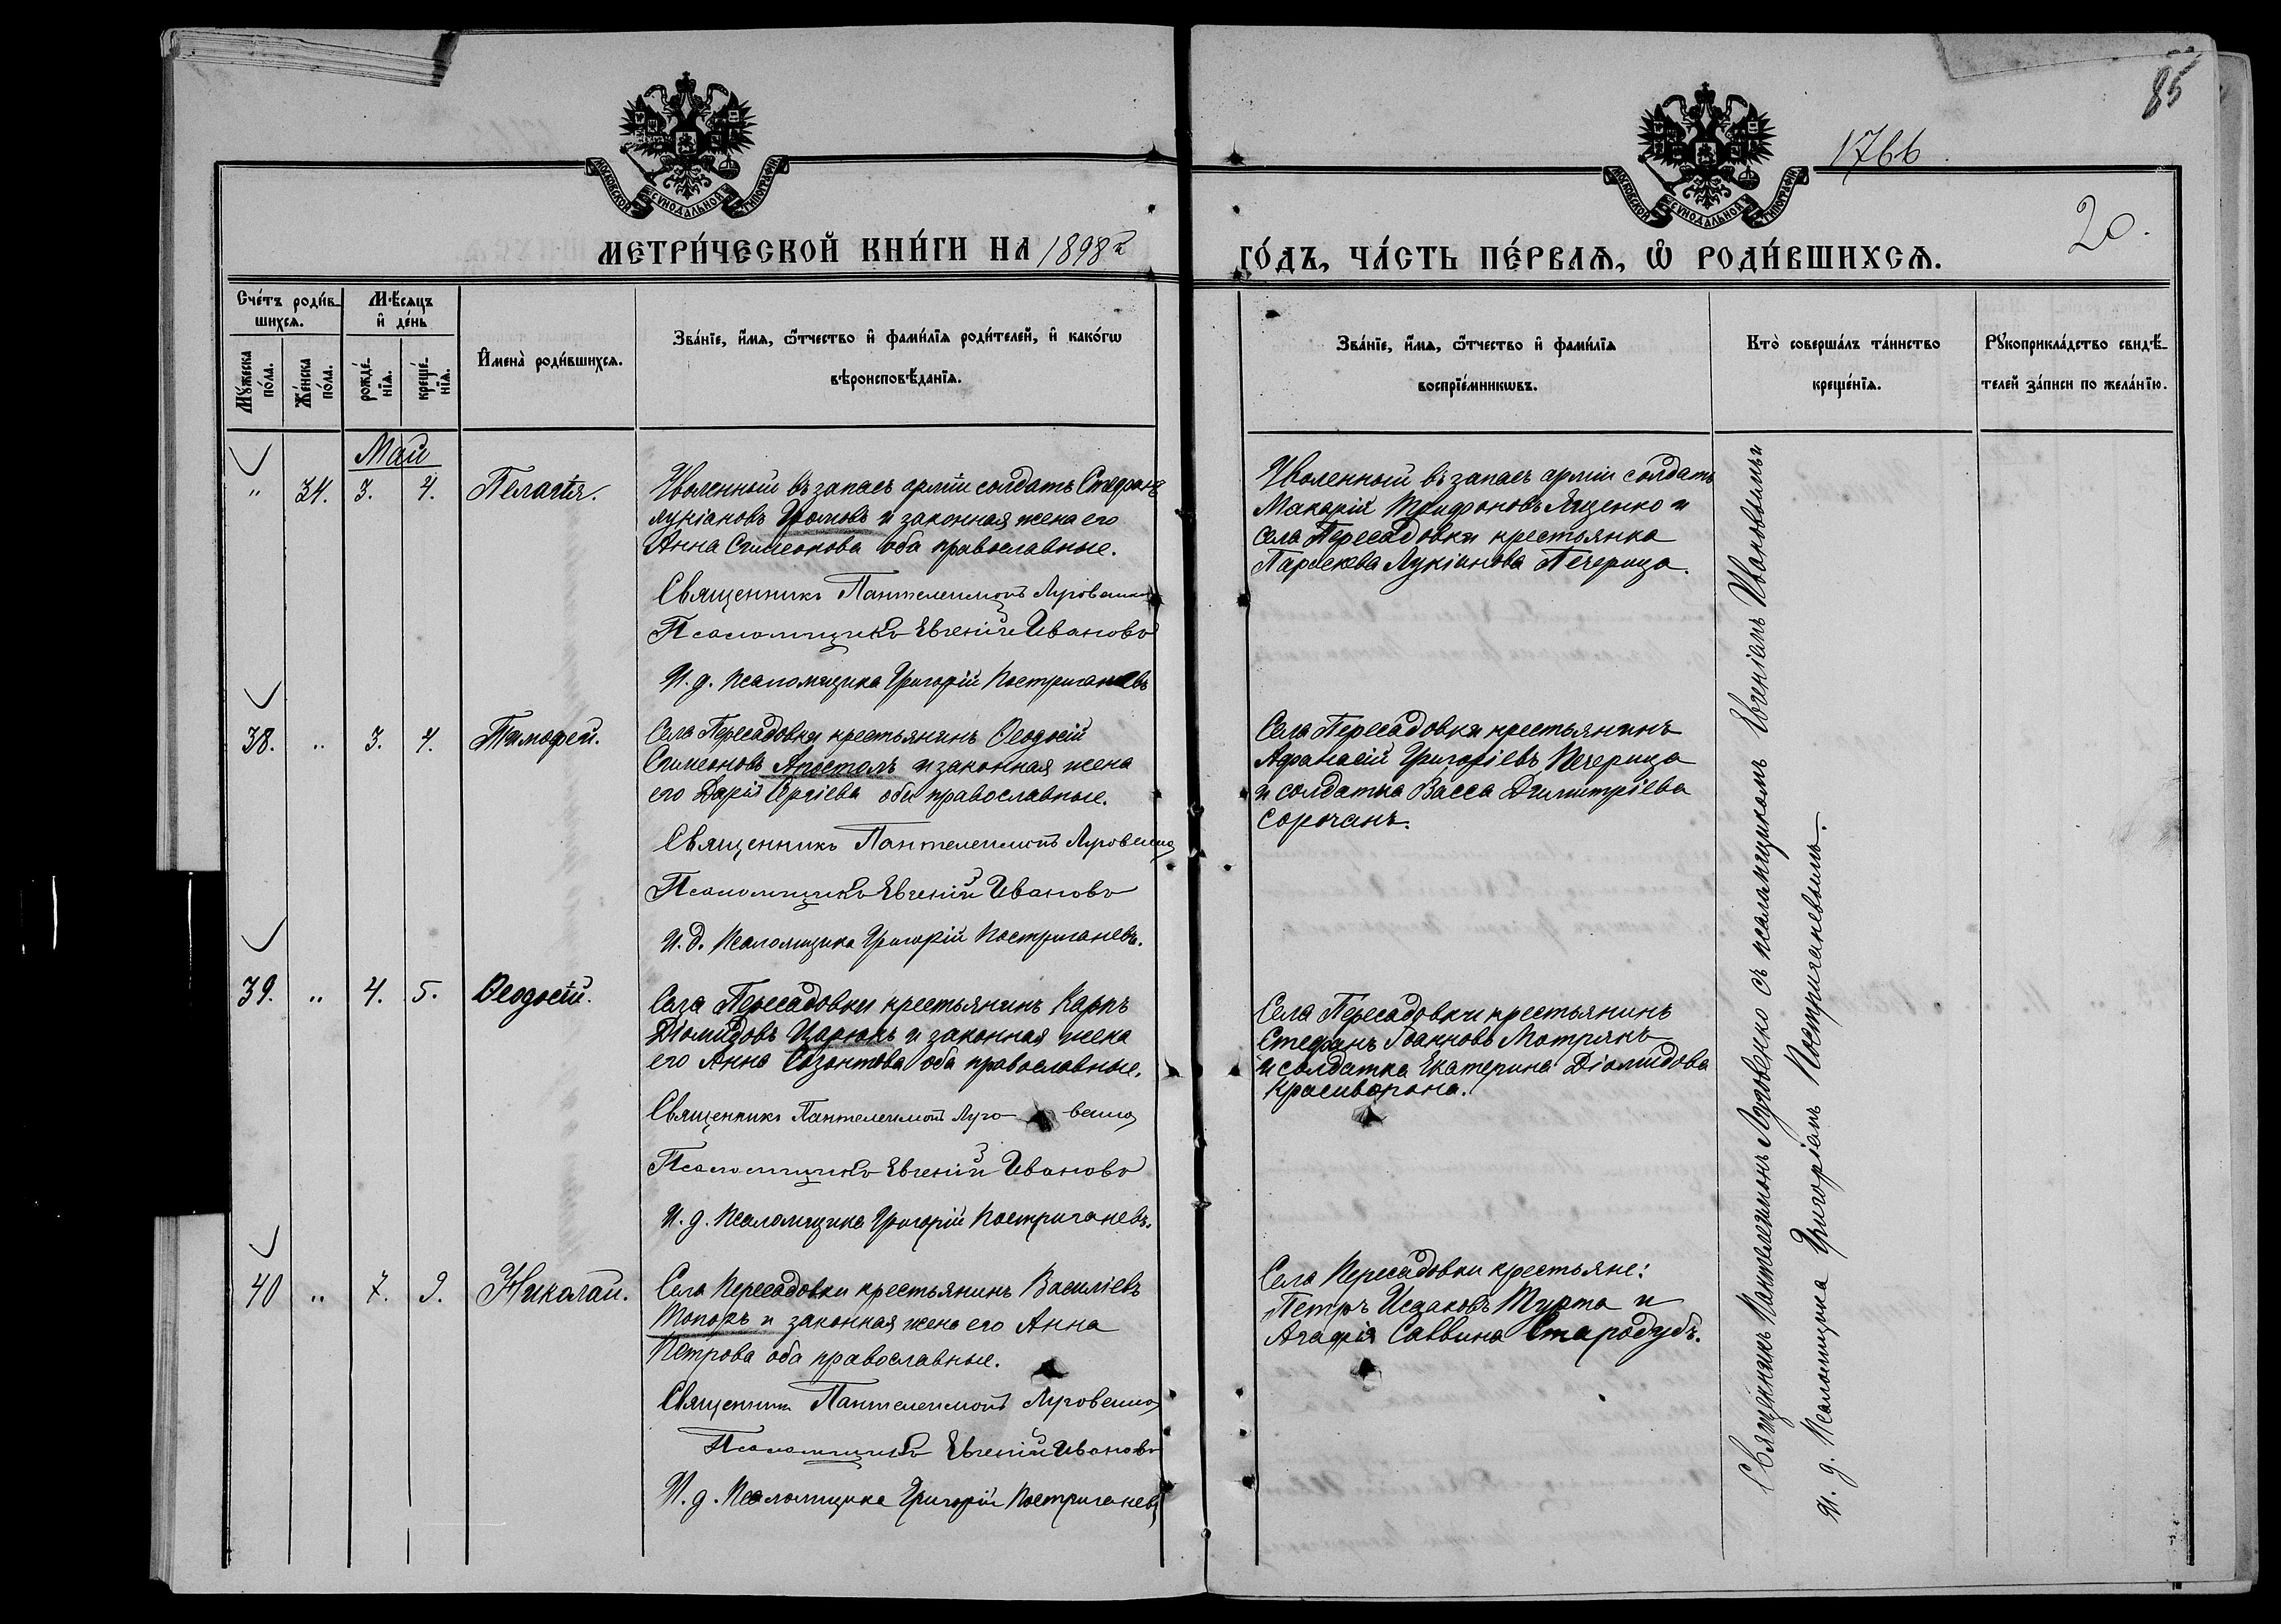 85
1766.
20.
МОСКОВСКОЙ СѴНОДАЛЬНОЙ ТИПОГРАФІИ
МОСКОВСКОЙ СѴНОДАЛЬНОЙ ТИПОГРАФІИ
МЕТРИ́ЧЕСКОЙ КНИ́ГИ НА 1898 й
ГО́ДЪ, ЧА́СТЬ ПЕ́РВАѦ, Ѽ РОДИ́ВШИХСѦ.
Сче́тъ роди́в-
шихсѧ.
Мꙋ́жеска по́ла.
Же́нска по́ла.
Мѣ́сѧцъ
и҆ де́нь
рожде́-нїѧ.
креще́-нїѧ.
И҆мена̀ роди́вшихсѧ.
Зва́нїе, и҆́мѧ, ѻ҆́тчество и҆ фами́лїѧ роди́телей, и҆ како́гѡ
вѣроисповѣ́данїѧ.
Зва́нїе, и҆́мѧ, ѻ҆́тчество и҆ фами́лїѧ
воспрїе́мникѡвъ.
Кто̀ соверша́лъ та́инство
креще́нїѧ.
Рꙋкоприкла́дство свидѣ́-
телей за́писи по жела́нїю.
Май
" 34. 3. 4. Пелагія.
Уволенный въ запасъ арміи солдатъ Стефанъ
Лукіановъ Громовъ и законная жена его
Анна Симеонова оба православные.
Священникъ Пантелеимонъ Луговенко
Псаломщикъ Евгеній Ивановъ
И. д. Псаломщика Григорій Постригачевъ
Уволенный въ запасъ арміи солдатъ
Макарій Трифоновъ Яценко и
села Пересадовки крестьянка
Параскева Лукіанова Печерица.
38. " 3. 4. Тимофей.
Села Пересадовки крестьянинъ Ѳеодосій
Симеоновъ Апостолъ и законная жена
его Дарія Сергіева оба православные.
Священникъ Пантелеимонъ Луговенко
Псаломщикъ Евгеній Ивановъ
И. д. Псаломщика Григорій Постригачевъ.
Села Пересадовки крестьянинъ
Афанасій Григоріевъ Печерица
и солдатка Васса Димитріева
Сорочанъ.
39. " 4. 5. Ѳеодосій.
Села Пересадовки крестьянинъ Карпъ
Діомидовъ Царюкъ и законная жена
его Анна Созонтова оба православные.
Священникъ Пантелеимонъ Луго-венко
Псаломщикъ Евгеній Ивановъ
И. д. Псаломщика Григорій Постригачевъ.
Села Пересадовки крестьянинъ
Стефанъ Іоанновъ Мотрякъ
и солдатка Екатерина Діомидова
Красиворона.
40 " 7. 9. Николай.
Села Пересадовки крестьянинъ Василіевъ
Топоръ и законная жена его Анна
Петрова оба православные.
Священникъ Пантелеимонъ Луговенко
Псаломщикъ Евгеній Ивановъ
И. д. Псаломщика Григорій Постригачевъ
Села Пересадовки крестьяне:
Петръ Исааковъ Мурта и
Агафія Саввина Стародубъ.
Священникъ Пантелеимонъ Луговенко съ псаломщикомъ Евгеніемъ Ивановымъ и
и. д. Псаломщика Григоріемъ Постригачевымъ.